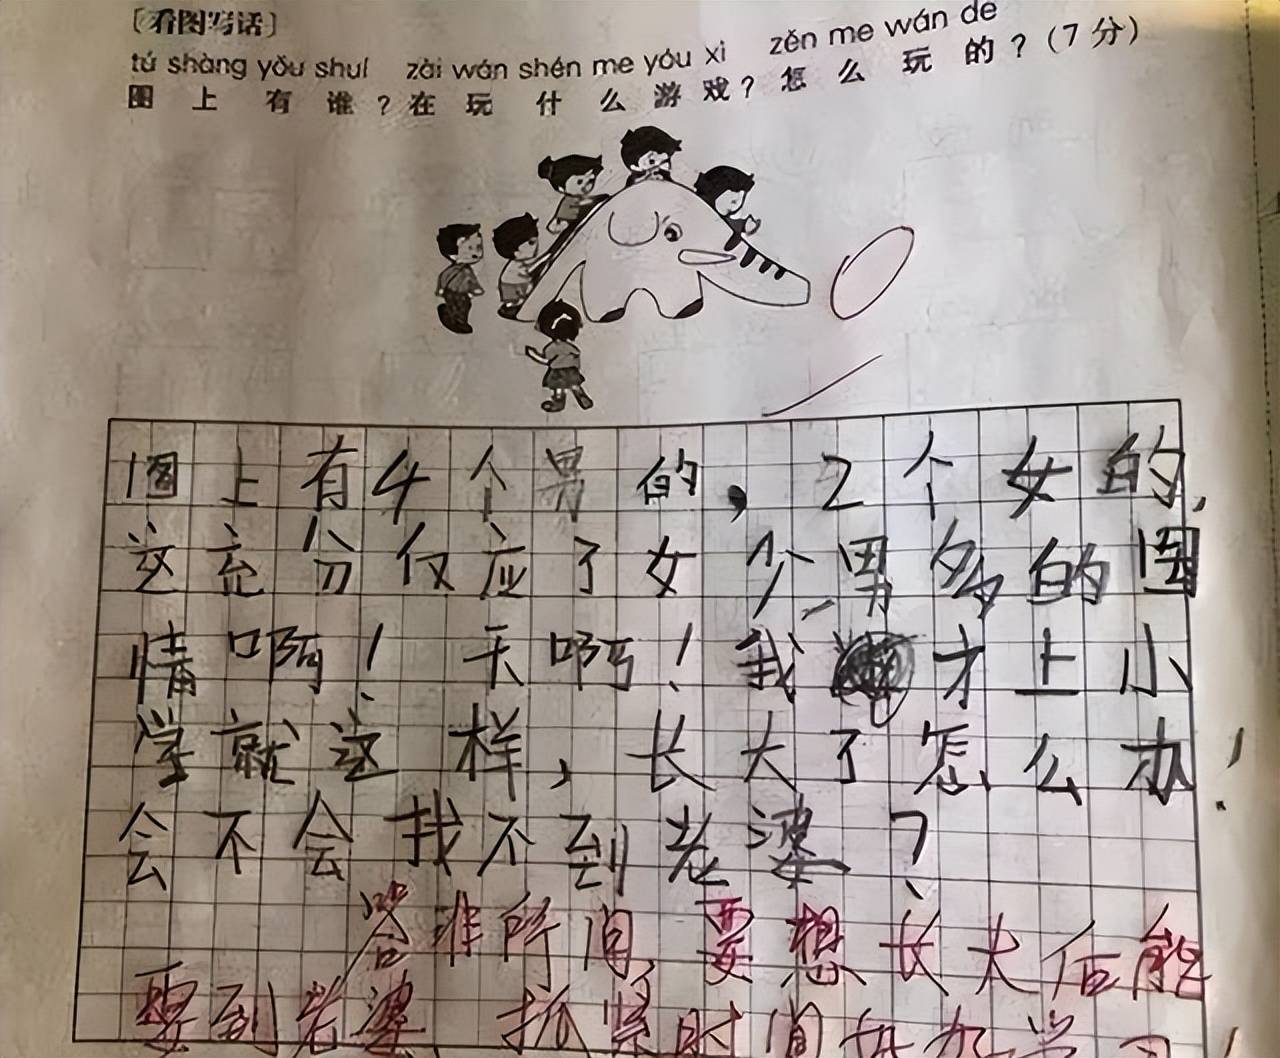 〔看图写话〕
tú shàng yǒu shuí zài wán shén me yóu xì zěn me wán de
图上有谁？在玩什么游戏？怎么玩的？（7分）
图上有4个男的，2个女的，
这充分仅应了女少男多的国
情啊！天啊！我才上小
学就这样，长大了怎么办！
会不会找不到老婆？
答非所问，要想长大后能
娶到老婆，抓紧时间